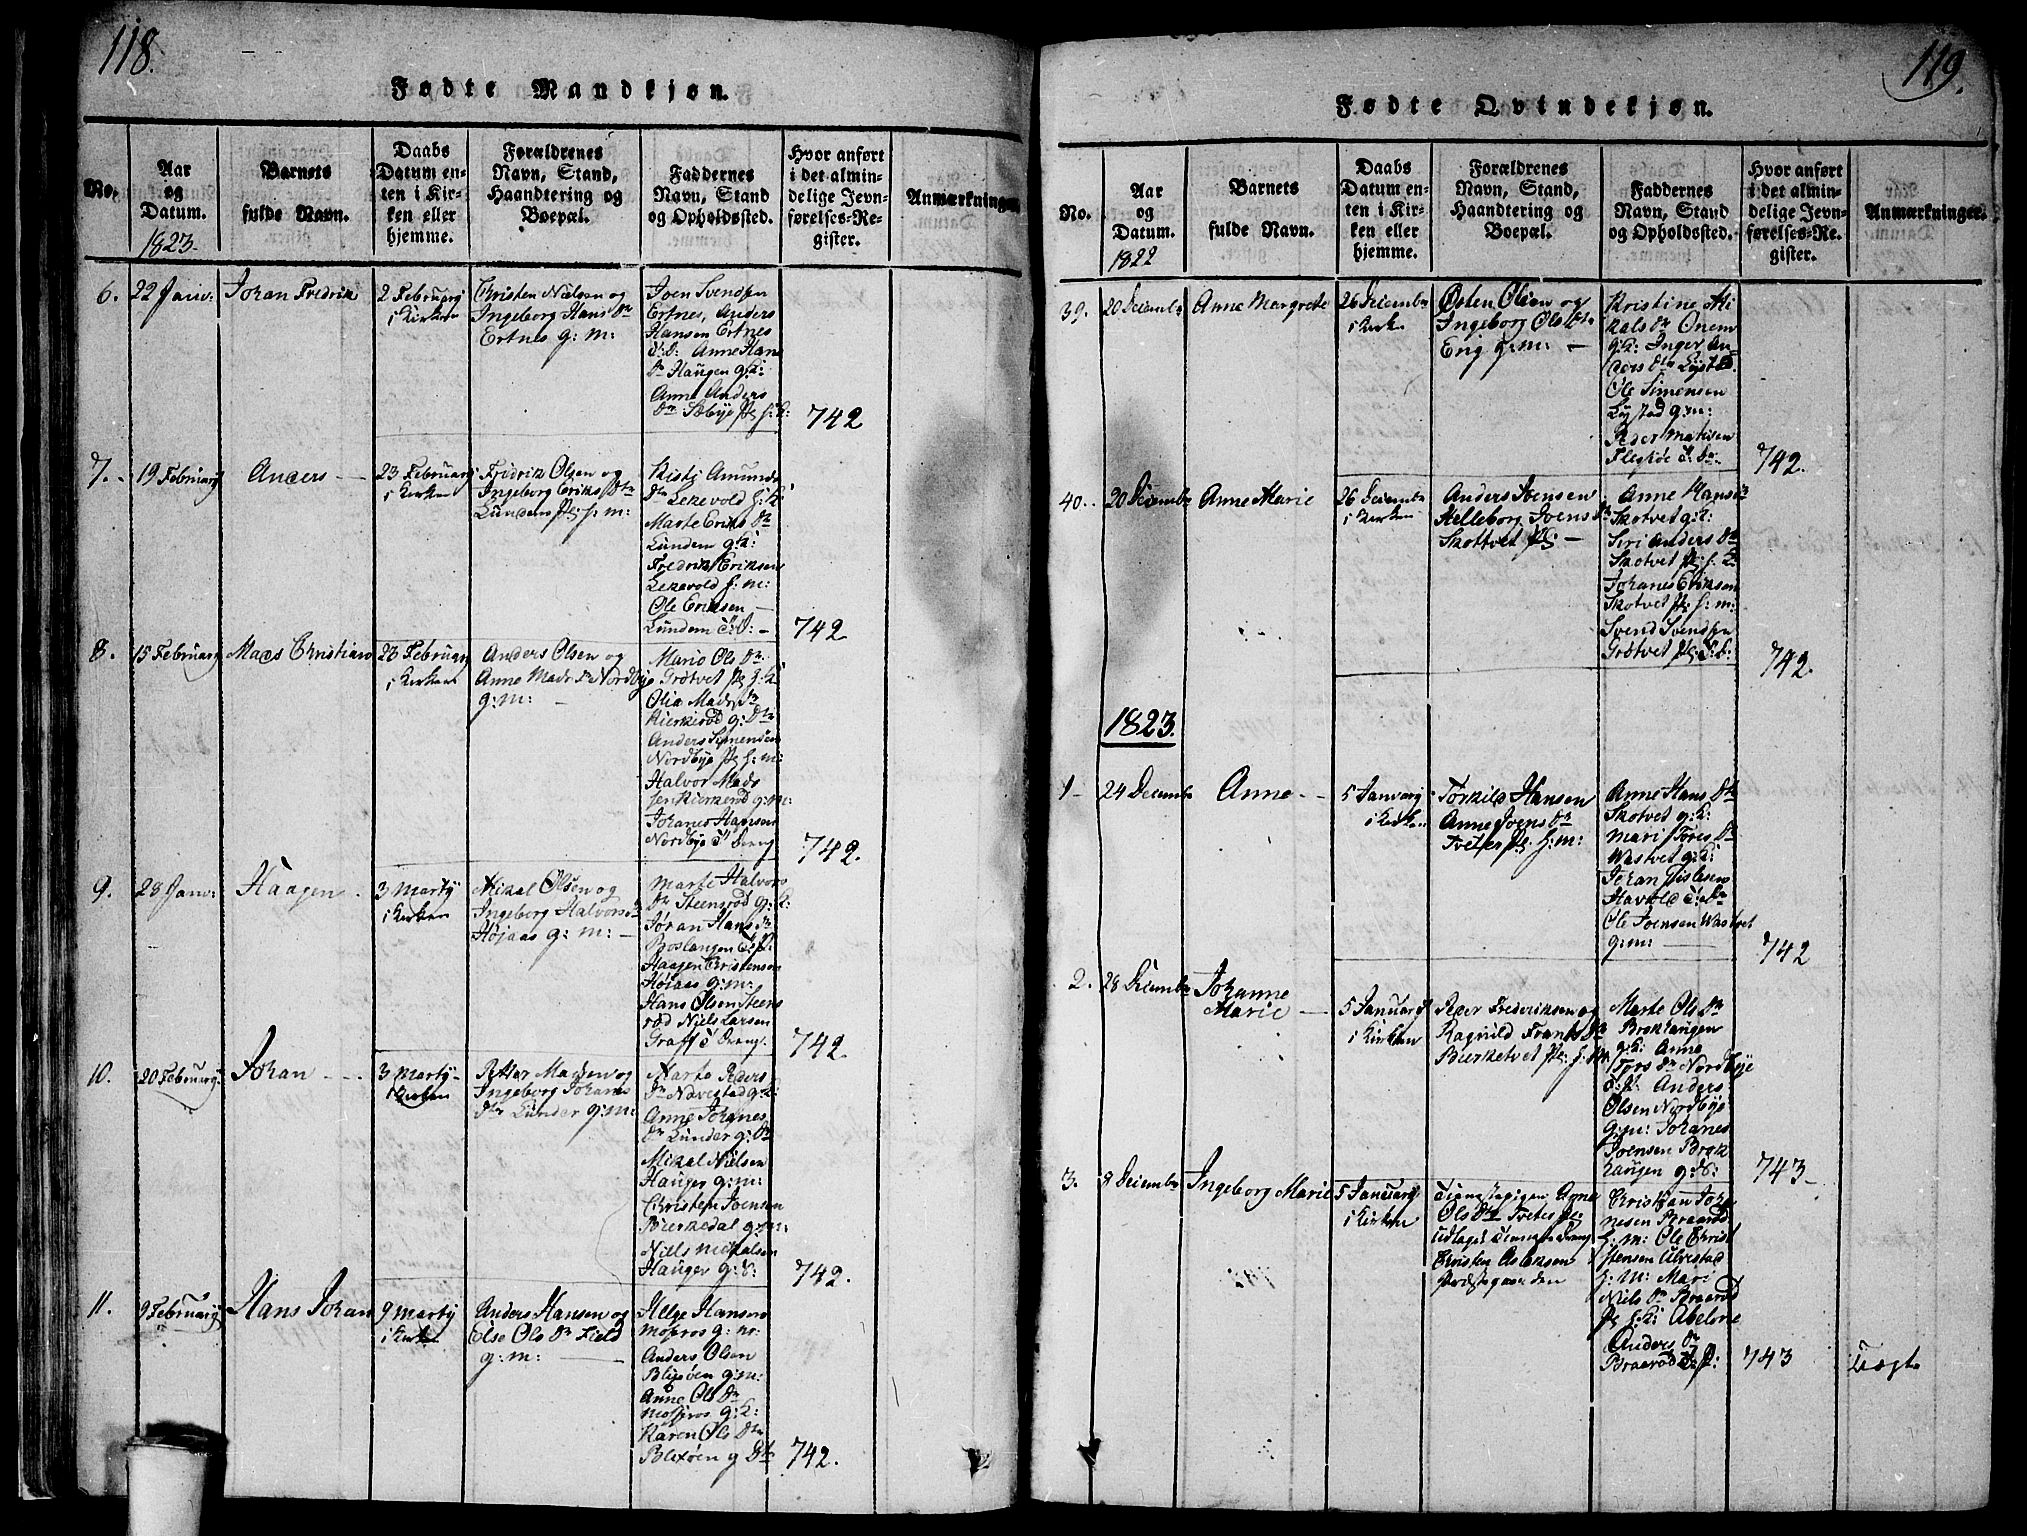 118.
Fødte Mandkjøn.
No.
Aar
og
Datum.
1823.
Barnets
fulde Navn.
Daabs
Datum en-
ten i Kir-
ken eller
hjemme.
Forældrenes
Navn, Stand,
Haandtering og
Boepæl.
Faddernes
Navn, Stand
og Opholdssted.
Hvor anført
i det almin-
delige Jevn-
førelses-Re-
gister.
Anmærkninger.
6.
22 Janv:
Johan Fredrik
2 Februarij
i Kirken
Christen Nielsen og
Ingeborg Hans Dr
Ertnes g: m:
Joen Svendsen
Ertnes, Anders
Hansen Ertnes
Anne Hans
Dr Haugen g: k:
Anne Anders
Dr Sæbye
742
7.
19 Februarij
Anders
23 Februarij
i Kirken
Fredrik Olsen og
Ingeborg Eriks Dtr
Lunden pl: h: m:
Kisti Amunds
Dtr Lekevold h: k:
Marte Eriks Dr
Lunden g: k:
Fredrik Eriksen
Lekevold h: m:
Ole Eriksen
Lunden
742
8.
15 Februarij
Mads Christian
23 Februarij
i Kirken
Anders Olsen og
Anne Mads Dr Nordbye
g: m:
Marie Ols Dr
Grøtvet pl h: k:
Olia Mads Dr
Kierkerød g: Dtr
Anders Simensen
Nordbye pl h: m:
Halvor Mads
sen Kierkerød g: m:
Johanes Hansen
Nordbye Dreng
742.
9.
28 Janv:
Haagen
3 Martij
i Kirken
Mikal Olsen og
Ingeborg Halvors Dr
Højaas g: m:
Marte Halvors
Dr Steensrød g: k:
Jøran Hans Dr
Boslangen
Haagen Christensen
Højaas g: m:
Hans Olsen Steens
rød Niels Larsen
Graff Dreng.
742.
10.
20 Februarij
Johan
3 Martij
i Kirken
Petter Madsen og
Ingeborg Johanes
Dtr Lunder g: m:
Marte Peers
Dr Navestad g: k:
Anne Johanes
Dr Lunder g: Dr
Mikal Nielsen
Hauger g: m:
Christen Joensen
Bierkedal g: m:
Niels Mikalsen
Hauger g: S:
742.
11.
9 Februarij
Hans Johan
9 Martij
i Kirken
Anders Hansen og
Else Ols Dr Field
g: m:
Helge Hansen
Mosseros g: m:
Anders Olsen
g: m:
Anne Ols Dr
Mosseros g: k:
Karen Ols Dtr
g Dtr
742.
119.
Fødte Qvindekjøn.
No.
Aar
og
Datum.
1822
Barnets
fulde Navn.
Daabs
Datum en-
ten i Kir-
ken eller
hjemme.
Forældrenes
Navn, Stand,
Haandtering og
Boepæl.
Faddernes
Navn, Stand
og Opholdssted.
Hvor anført
i det almin-
delige Jevn-
førelses-Re-
gister.
Anmærkninger.
39.
20 Decembr
Anne Margrete
26 Decembr
i Kirken
Østen Olsen og
Ingeborg Ols Dtr
Erig g: m:
Kristine Mi
kals Dr Onem
g: k: Inger An
ders Dtr Lystad
Ole Simensen
Lystad g: m:
Peder Matisen
742.
40.
20 Decembr
Anne Marie
26 Decembr
i Kirken
Anders Joensen
Helleborg Joens Dr
Skottvet pl:
Anne Hans Dr
Skotvet g: k:
Siri Anders Dr
Skotvet pl: h: k:
Johanes Eriksen
Skotvet pl: h: m:
Svend Svendsen
Grøtvet
742.
1823.
1
24 Decembr
Anne
5 Janvarij
i Kirken
Torkild Hansen
Anne Joens Dr
Tveter pl. h: m:
Anne Hans Dtr
Skotvet g: k:
Mari Tores Dr
Wastvet g: k:
Johan Nielsen
Ole Joensen Wastvet
g: m:
742
2.
28 Decembr
Johanne
Marie
5 Januarij
i Kirken
Peer Frederiksen og
Ragnild Frants Dr
Bierketvet pl: h: m.
Marte Ols Dr
Brekhaugen
g: k: Anne
Tors Dr Nordbye
Anders
Olsen Nordbye
g: m: Johanes
Joensen Brek
haugen g: S:
743
3.
8 Decembr
Ingeborg Marie
5 Januarij
i Kirken
Tienestepigen Anne
Ols Dtr Tveter pl:
udlagt Tieneste Dreng
Christen Aslaksen
Præstegaarden
Christian Joha
nesen Braarød
h: m: Ole Christ
stensen Ulvestad
h: m: Mari
Niels Dr Braarød
pl h: k: Abelone
Anders Dr
Braarød
743
Uægte